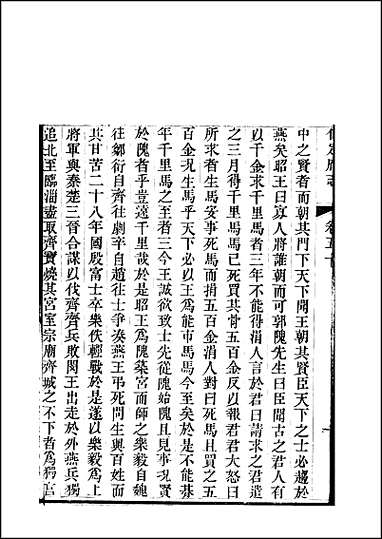 保定府志 卷五十
中之賢者而朝其門下天下聞王朝其賢臣天下之士必趨於
燕矣昭王曰寡人將誰朝而可郭隗先生曰臣聞古之君人有
以千金求千里馬者三年不能得涓人言於君曰請求之君遣
之三月得千里馬馬已死買其骨五百金反以報君君大怒曰
所求者生馬安事死馬而捐五百金涓人對曰死馬且買之五
百金況生馬乎天下必以王爲能市馬馬今至矣於是不能朞
年千里馬之至者三今王誠欲致士先從隗始隗且見事況賢
於隗者乎豈遠千里哉於是昭王爲隗築宮而師之樂毅自魏
往鄒衍自齊往劇辛自趙往士爭湊燕王弔死問生與百姓同
其甘苦二十八年國殷富士卒樂佚輕戰於是遂以樂毅爲上
將軍與秦楚三晉合謀以伐齊齊兵敗閔王出走於外燕兵獨
追北至臨淄盡取齊寶燒其宮室宗廟齊城之不下者爲獨官